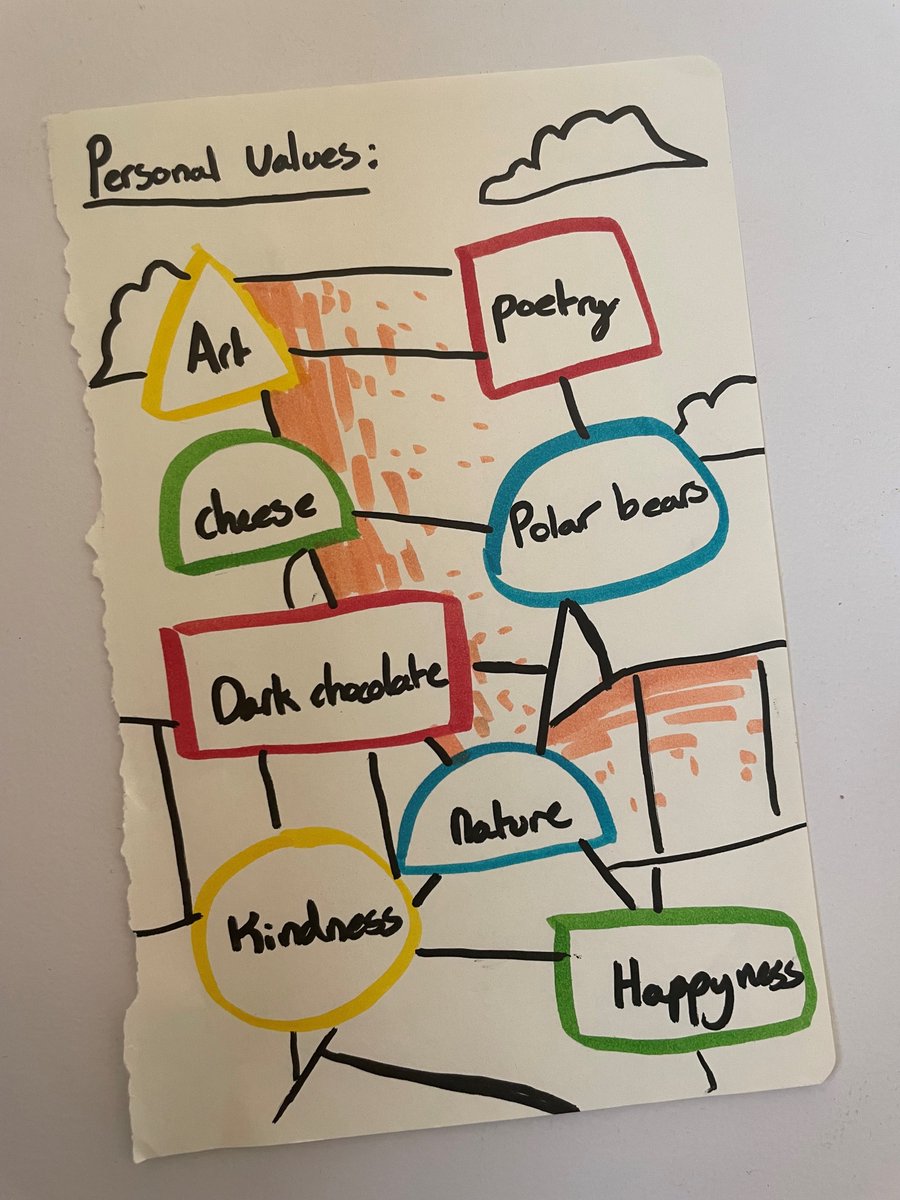 Personal Values:
Art
poetry
cheese
Polar bears
Dark chocolate
nature
Kindness
Happyness